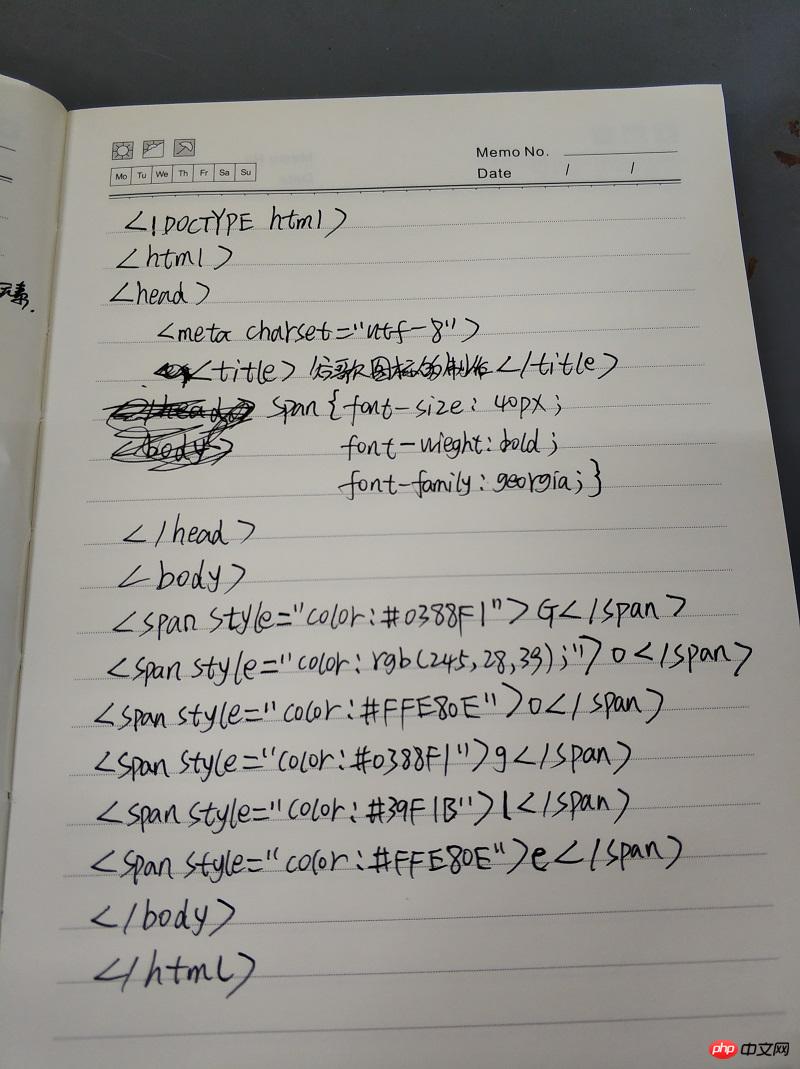 Memo No.
Mo Tu We Th Fr Sa Su
Date / /
<!DOCTYPE html>
<html>
<head>
<meta charset="utf-8">
<title>谷歌图标的制作</title>
span{font-size: 40px;
font-wieght: bold;
font-family: georgia;}
</head>
<body>
<span style="color:#0388F1">G</span>
<span style="color: rgb(245,28,39);">o</span>
<span style="color:#FFE80E">o</span>
<span style="color:#0388F1">g</span>
<span style="color:#39F1B">l</span>
<span style="color:#FFE80E">e</span>
</body>
</html>
元素.
php 中文网